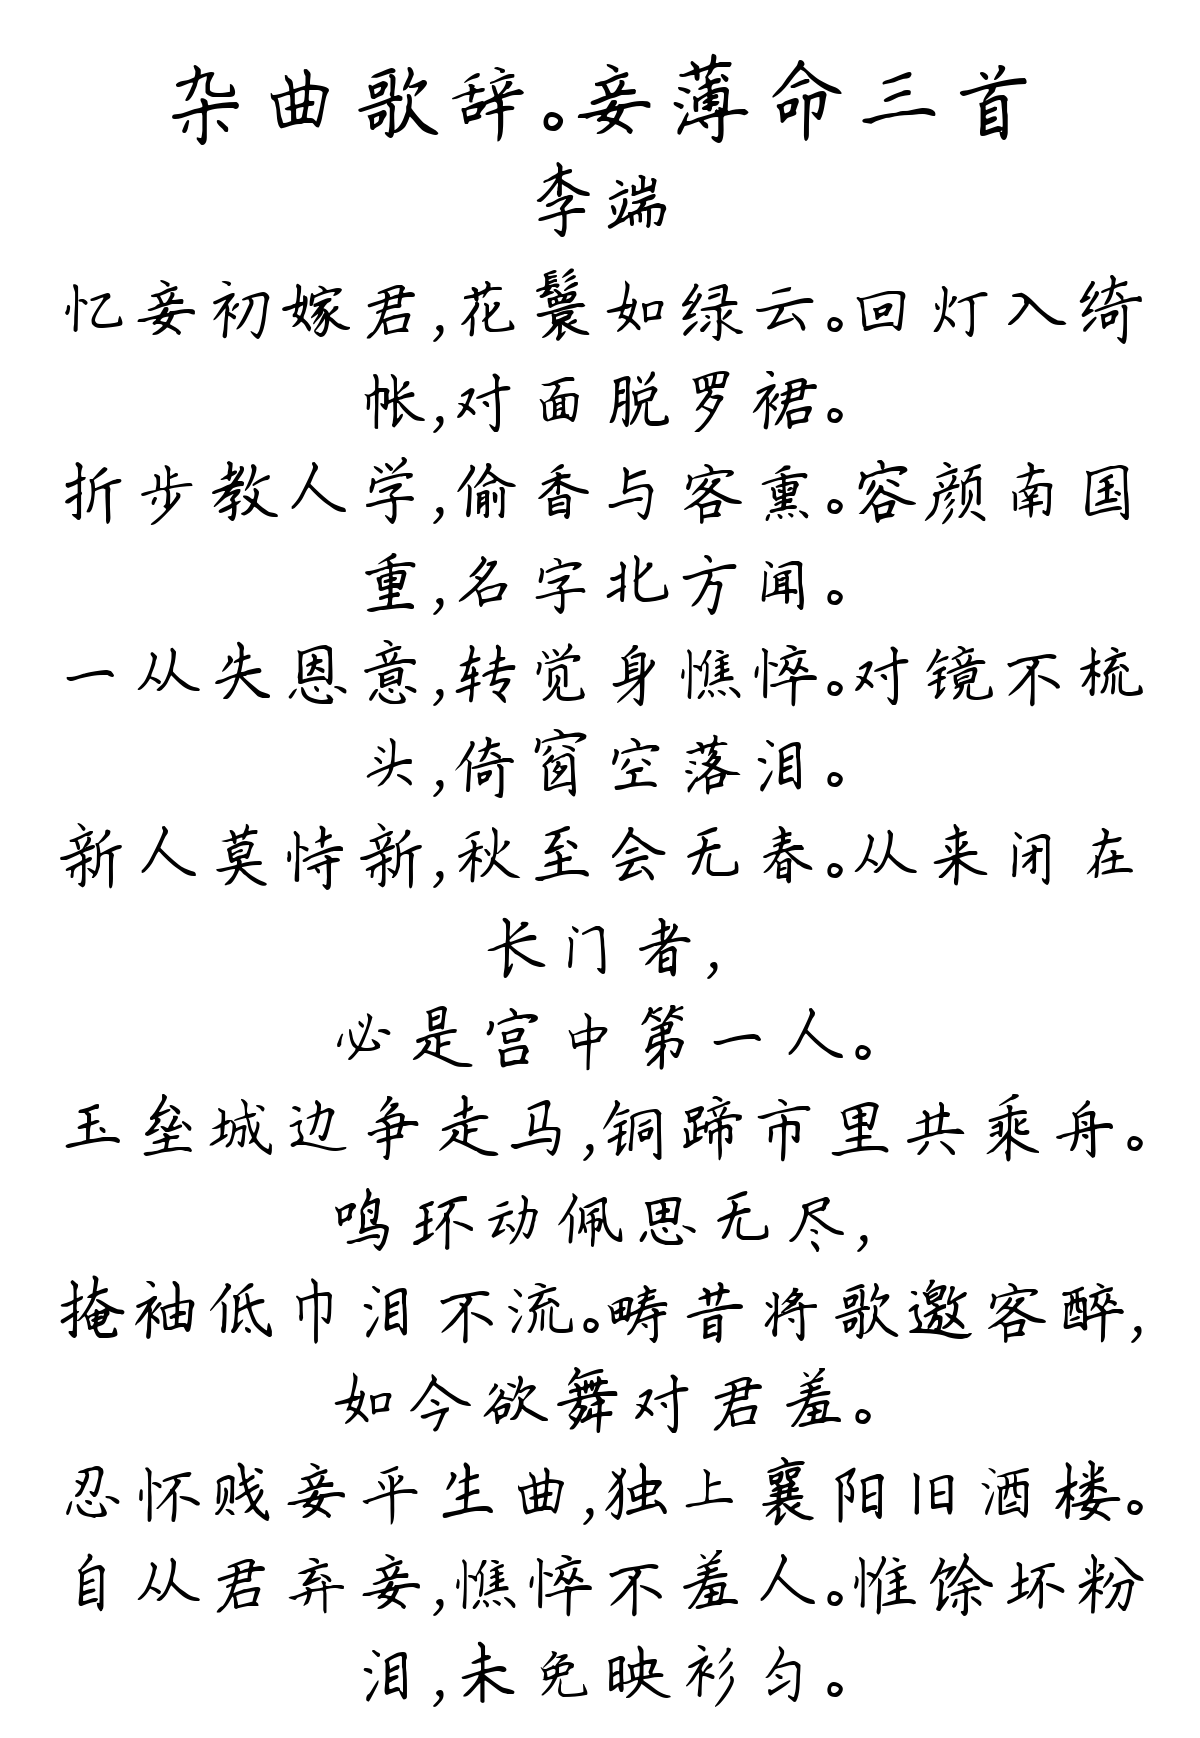 杂曲歌辞。妾薄命三首
李端
忆妾初嫁君,花鬟如绿云。回灯入绮
帐,对面脱罗裙。
折步教人学,偷香与客熏。容颜南国
重,名字北方闻。
一从失恩意,转觉身憔悴。对镜不梳
头,倚窗空落泪。
新人莫恃新,秋至会无春。从来闭在
长门者,
必是宫中第一人。
玉垒城边争走马,铜蹄市里共乘舟。
鸣环动佩思无尽,
掩袖低巾泪不流。畴昔将歌邀客醉,
如今欲舞对君羞。
忍怀贱妾平生曲,独上襄阳旧酒楼。
自从君弃妾,憔悴不羞人。惟馀坏粉
泪,未免映衫匀。